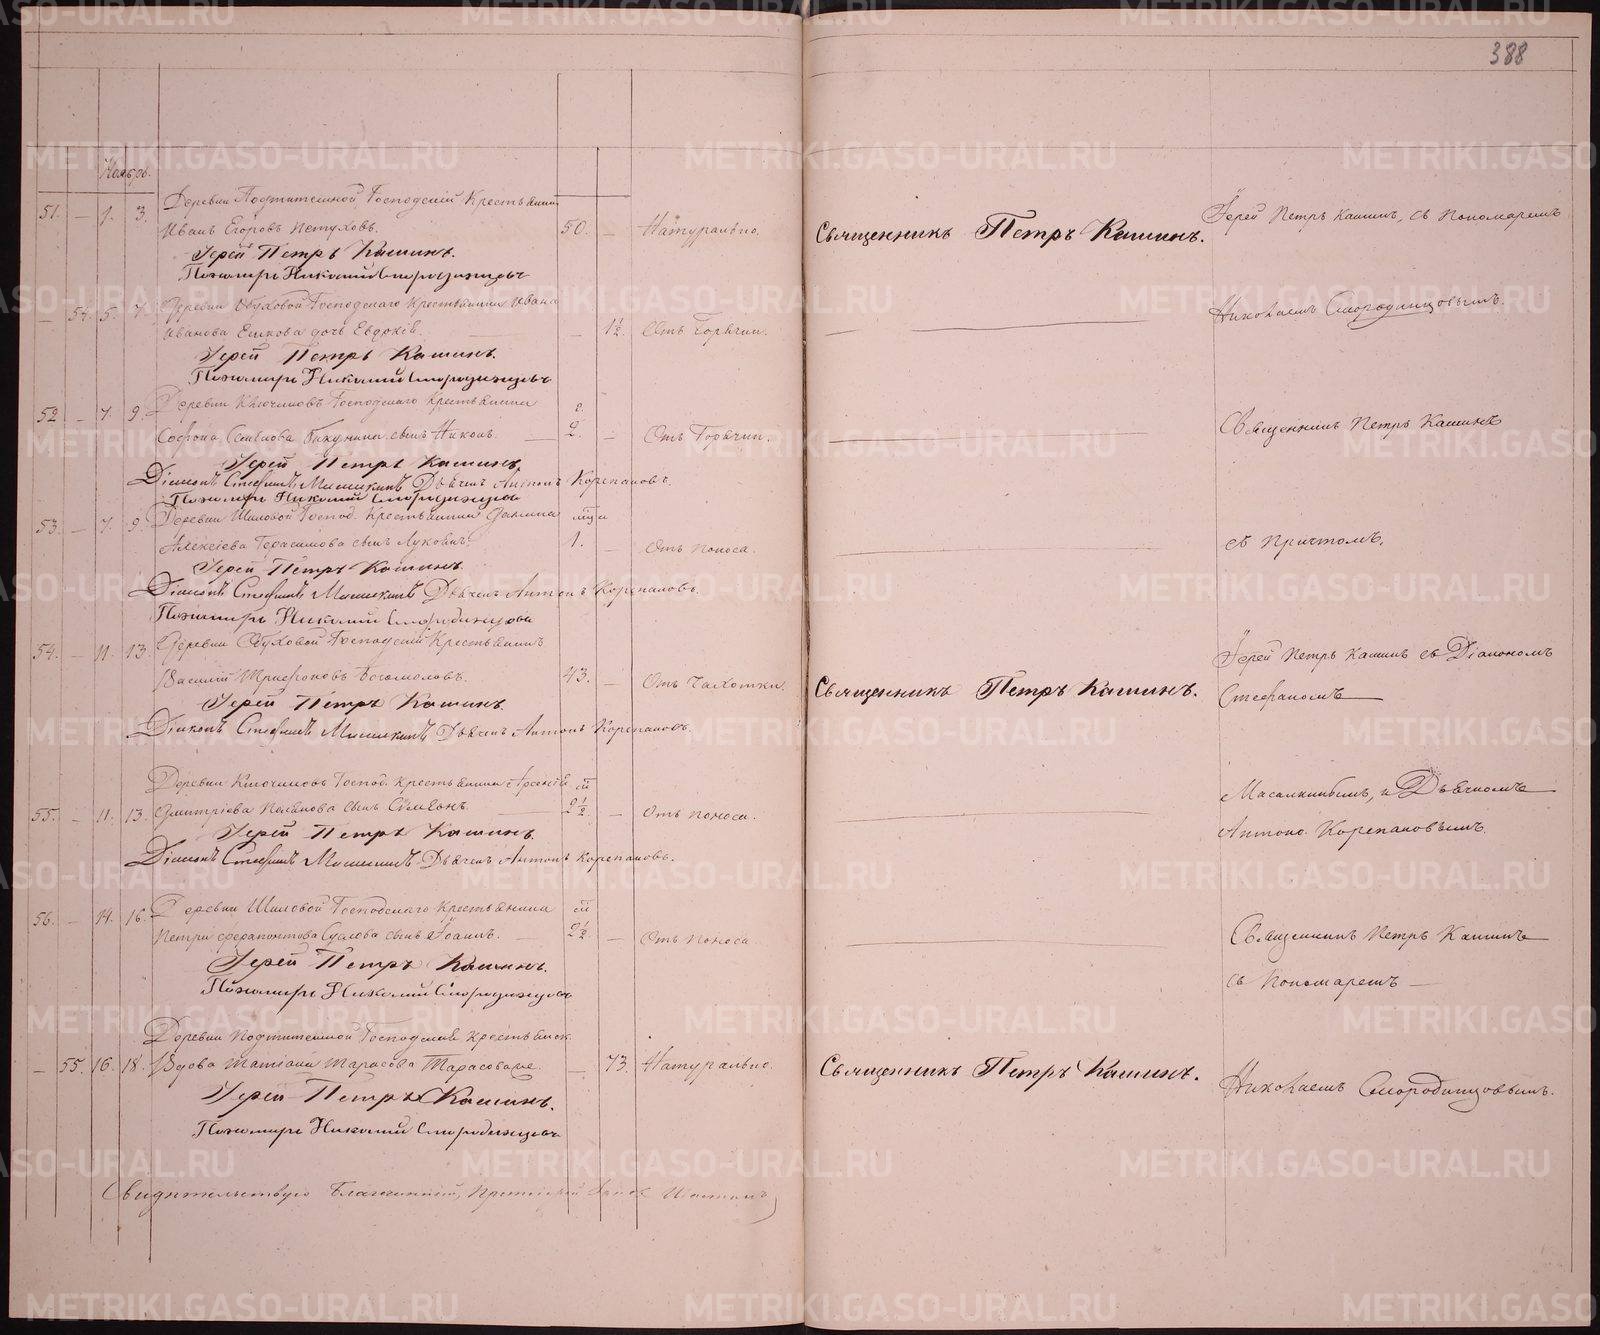 388
Ноябрь.
51. — 1. 3. Деревни Подтитешной, Господский Крестьянин
Иванъ Егоровъ Петуховъ. 50. — Натурально. Священникъ Петръ Кашинъ. Іерей Петръ Кашинъ, съ Пономаремъ
Іерей Петръ Кашинъ.
Пономарь Николай Смородинцовъ
— 54. 5. 7. Деревни Обуховой Господскаго Крестьянина Ивана
Иванова Ешкова дочь Евдокія. — 1½. Отъ Горячки. Николаемъ Смородинцовымъ.
Іерей Петръ Кашинъ.
Пономарь Николай Смородинцовъ
52 — 7. 9. Деревни Ключиковъ Господскаго Крестьянина
Софона Бакунина сынъ Никонъ. г. 2. — Отъ Горячки. Священникъ Петръ Кашинъ
Іерей Петръ Кашинъ.
Діаконъ Стефанъ Дьячекъ Антонъ Корепановъ.
Пономарь Николай Смородинцовъ
53. — 7. 9. Деревни Шиловой Господ. Крестьянина Данила
Алексіева Герасимова сынъ 1. — Отъ поноса. съ Причтомъ.
Іерей Петръ Кашинъ
Діаконъ Стефанъ Дьячекъ Антонъ Корепановъ.
Пономарь Николай Смородинцовъ
54. — 11. 13. Деревни Обуховой Господскій Крестьянинъ
Василій Трифоновъ Богомоловъ. 43. — Отъ Чахотки. Священникъ Петръ Кашинъ. Іерей Петръ Кашинъ съ Діакономъ
Іерей Петръ Кашинъ. Стефаномъ
Діаконъ Стефанъ Дьячекъ Антонъ Корепановъ.
Деревни Ключиковъ Господ. Крестьянина Арсенія
55. — 11. 13. Димитріева сынъ Симеонъ. 2½. — Отъ поноса. и Дьячкомъ
Іерей Петръ Кашинъ. Антоно. Корепановымъ.
Діаконъ Стефанъ Дьячекъ Антонъ Корепановъ.
56. — 14. 16. Деревни Шиловой Господскаго Крестьянина
Петра Ферапонтова Суслова сынъ Іоаннъ. 2½. — Отъ поноса. Священникъ Петръ Кашинъ
Іерей Петръ Кашинъ. съ Пономаремъ —
Пономарь Николай Смородинцовъ
Деревни Подтитешной Крестьянск.
— 55. 16. 18. Вдова Татіана Тарасова — 73. Натурально. Священникъ Петръ Кашинъ. Николаемъ Смородинцовымъ.
Іерей Петръ Кашинъ.
Пономарь Николай Смородинцовъ
Свидетельствую Благочинный, Протоіерей
METRIKI.GASO-URAL.RU